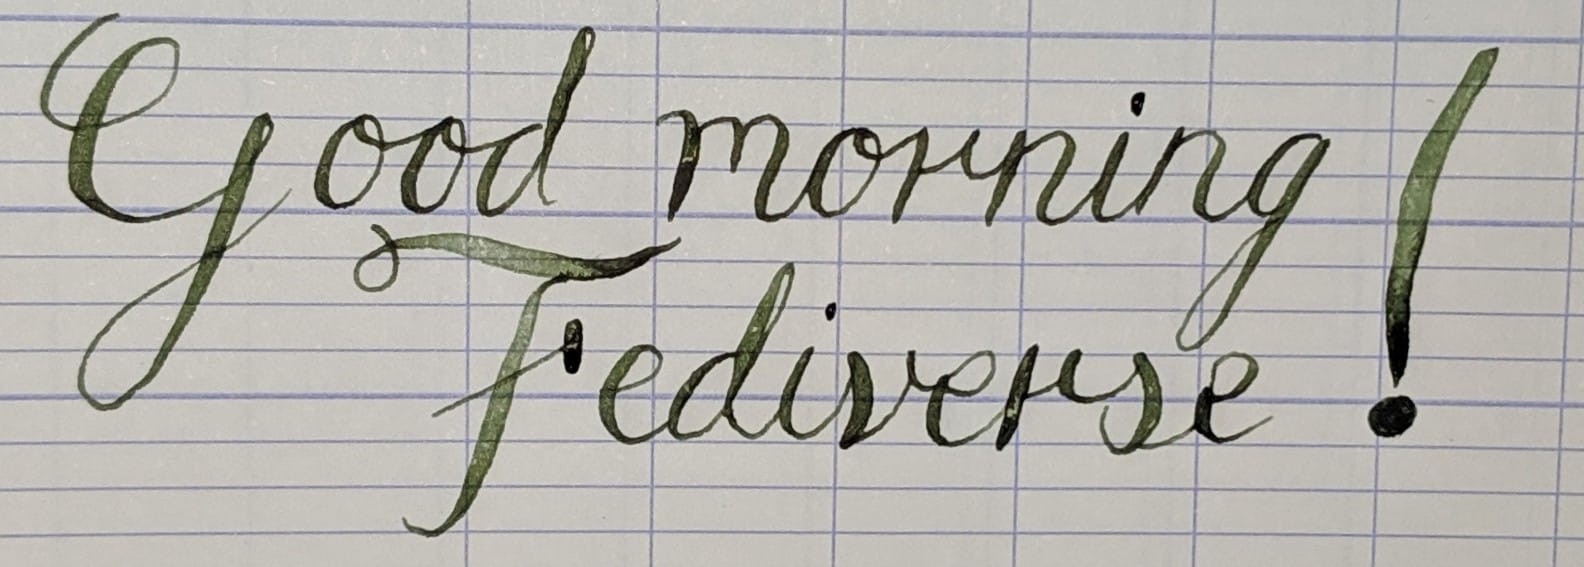 Good morning!
Fediverse